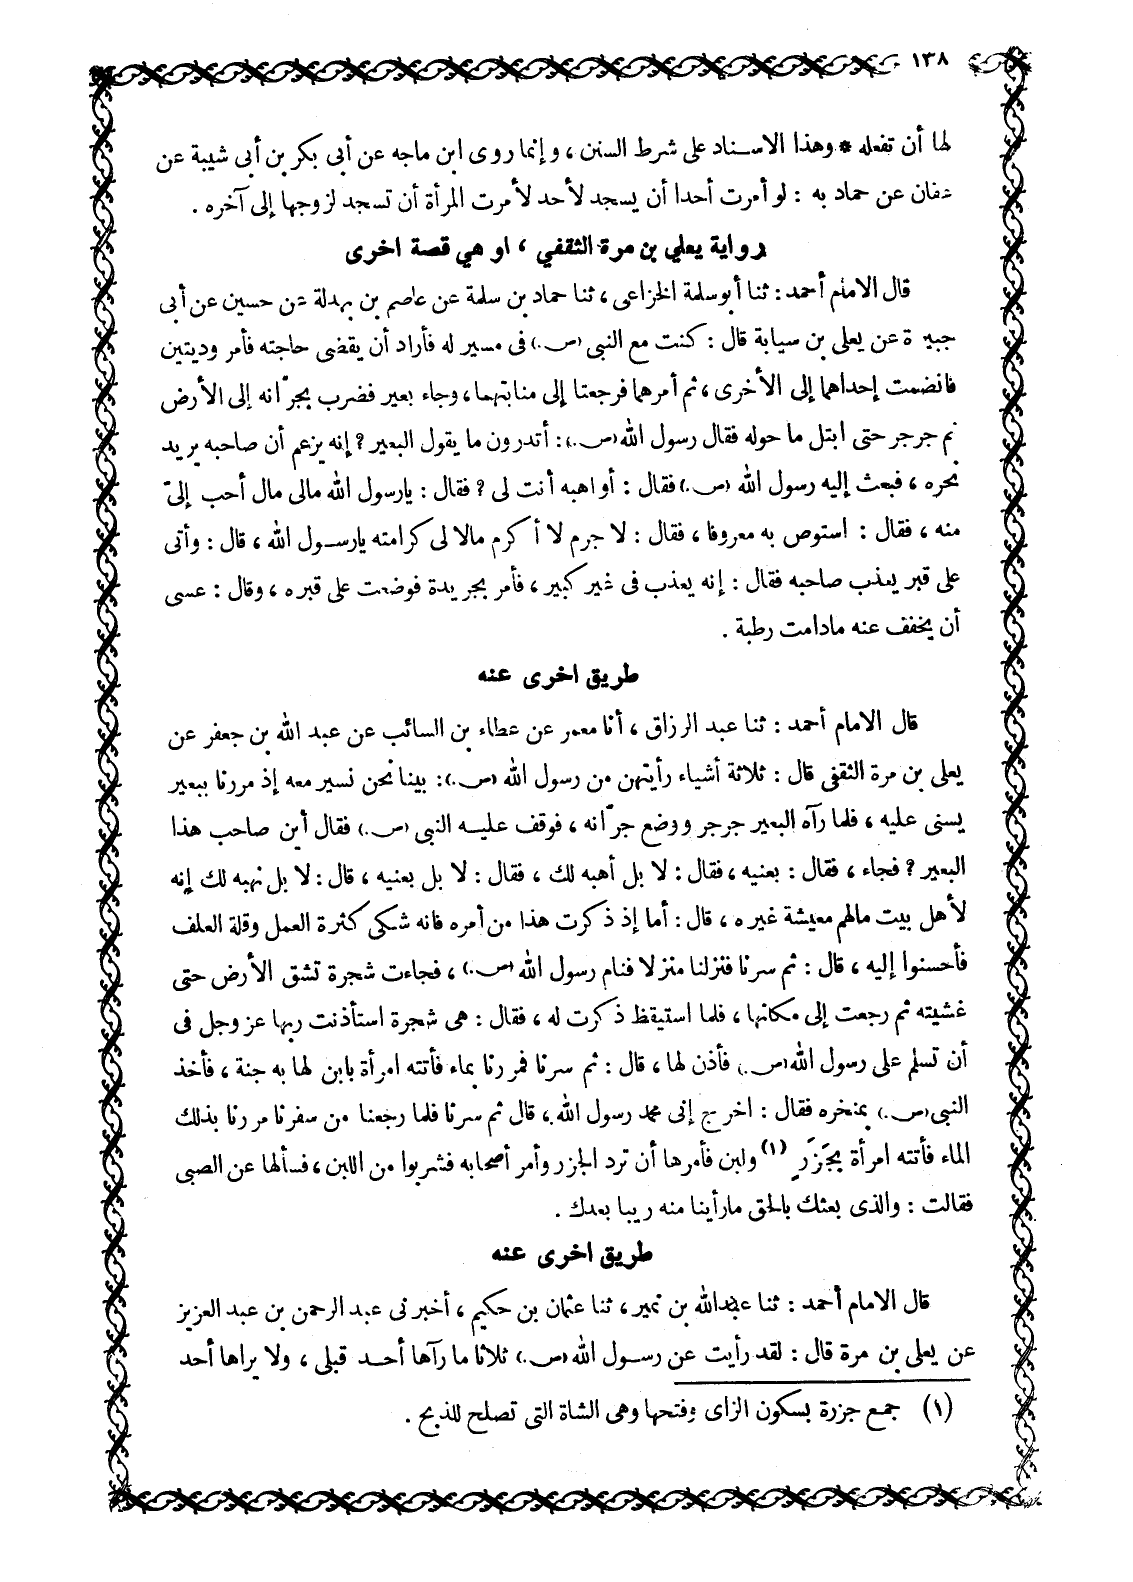 ١٣٨
لها أن تفعله * وهذا الاسناد على شرط السنن ، وإنما روى ابن ماجه عن أبى بكر بن أبى شيبة عن
عفان عن حماد به : لو أمرت أحدا أن يسجد لأحد لأمرت المرأة أن تسجد لزوجها إلى آخره .
رواية يعلي بن مرة الثقفي ، او هي قصة اخرى
قال الامام أحمد : ثنا أبو سلمة الخزاعى ، ثنا حماد بن سلمة عن عاصم بن بهدلة عن حسين عن أبى
جبيرة عن يعلى بن سيابة قال : كنت مع النبى (ص.) فى مسير له فأراد أن يقضى حاجته فأمر وديتين
فانضمت إحداهما إلى الأخرى ، ثم أمرهما فرجعتا إلى منابتهما ، وجاء بعير فضرب بجرّانه إلى الأرض
ثم جرجر حتى ابتل ما حوله فقال رسول الله (ص.) : أتدرون ما يقول البعير ? إنه يزعم أن صاحبه يريد
نحره ، فبعث إليه رسول الله (ص.) فقال : أواهبه أنت لى ? فقال : يارسول الله مالى مال أحب إلىّ
منه ، فقال : استوص به معروفا ، فقال : لا جرم لا أكرم مالا لى كرامته يارسول الله ، قال : وأتى
على قبر يعذب صاحبه فقال : إنه يعذب فى غير كبير ، فأمر بجريدة فوضعت على قبره ، وقال : عسى
أن يخفف عنه مادامت رطبة .
طريق اخرى عنه
قال الامام أحمد : ثنا عبد الرزاق ، أنا معمر عن عطاء بن السائب عن عبد الله بن جعفر عن
يعلى بن مرة الثقفى قال : ثلاثة أشياء رأيتهن من رسول الله (ص.) : بينا نحن نسير معه إذ مررنا ببعير
يسنى عليه ، فلما رآه البعير جرجر ووضع جرّانه ، فوقف عليه النبى (ص.) فقال أين صاحب هذا
البعير ? فجاء ، فقال : بعنيه ، فقال : لا بل أهبه لك ، فقال : لا بل بعنيه ، قال : لا بل نهبه لك إنه
لأهل بيت مالهم معيشة غيره ، قال : أما إذ ذكرت هذا من أمره فانه شكى كثرة العمل وقلة العلف
فأحسنوا إليه ، قال : ثم سرنا فنزلنا منزلا فنام رسول الله (ص.) ، فجاءت شجرة تشق الأرض حتى
غشيته ثم رجعت إلى مكانها ، فلما استيقظ ذكرت له ، فقال : هى شجرة استأذنت ربها عز وجل فى
أن تسلم على رسول الله (ص.) فأذن لها ، قال : ثم سرنا فمررنا بماء فأتته امرأة بابن لها به جنة ، فأخذ
النبى (ص.) بمنخره فقال : اخرج إنى محمد رسول الله ، قال ثم سرنا فلما رجعنا من سفرنا مررنا بذلك
الماء فأتته امرأة بجَزَرٍ (١) ولبن فأمرها أن ترد الجزر وأمر أصحابه فشربوا من اللبن ، فسألها عن الصبى
فقالت : والذى بعثك بالحق مارأينا منه ريبا بعدك .
طريق اخرى عنه
قال الامام أحمد : ثنا عبدالله بن نمير ، ثنا عثمان بن حكيم ، أخبرنى عبد الرحمن بن عبد العزيز
عن يعلى بن مرة قال : لقد رأيت عن رسول الله (ص.) ثلاثا ما رآها أحد قبلى ، ولا يراها أحد
(١) جمع جزرة بسكون الزاى وفتحها وهى الشاة التى تصلح للذبح .